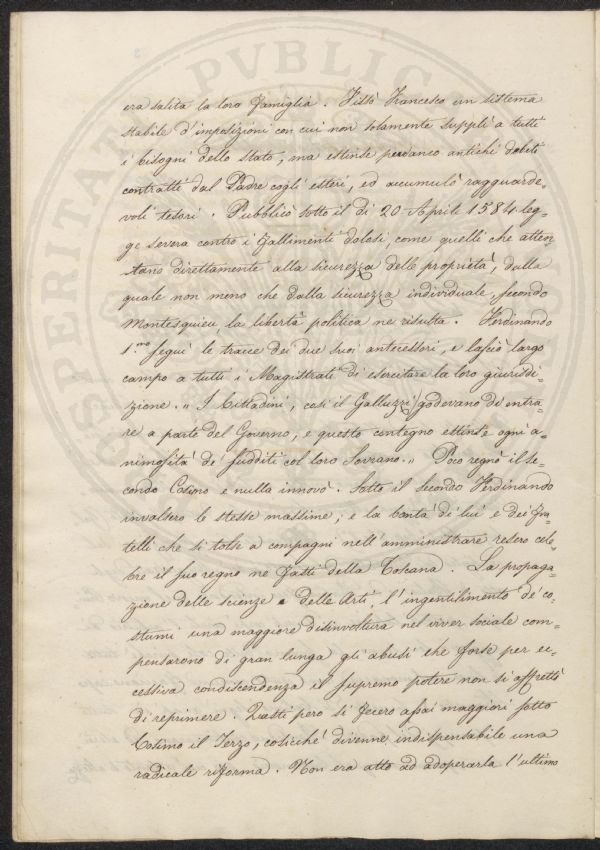 era salita la loro famiglia. Fissò Francesco un sistema
stabile d'imposizioni con cui non solamente supplì a tutti
i bisogni dello Stato, ma estinse peranco antichi debiti
contratti dal Padre cogli esteri, ed accumulò ragguarde=
voli tesori. Pubblicò sotto il dì 20 Aprile 1584 leg=
ge severa contro i fallimenti dolosi come quelli che atten
tano direttamente alla sicurezza delle proprietà, dalla
quale non meno che dalla sicurezza individuale, secondo
Montesquieu la libertà politica ne risulta. Ferdinando
1.mo seguì le tracce dei due suoi antecessori, e lasciò largo
campo a tutti i Magistrati di esercitare la loro giurisdi=
zione. " I Cittadini, così il Galluzzi, godevano di entra=
re a parte del Governo, e questo contegno estinse ogni a=
nimosità de' sudditi col loro Sovrano." Poco regnò il se=
condo Cosimo e nulla innovò. Sotto il secondo Ferdinando
invalsero le stesse massime, e la bontà di lui e dei fra=
telli che si tolse a compagni nell'amministrare resero cele=
bre il suo regno ne fasti della Toscana. La propaga=
zione delle scienze e delle Arti, l'ingentilimento de' co=
stumi una maggiore disinvoltura nel viver sociale com=
pensarono di gran lunga gli abusi che forse per ec=
cessiva condiscendenza il supremo potere non si affrettò
di reprimere. Questi però si fecero assai maggiori sotto
Cosimo il Terzo, cosicchè divenne indispensabile una
radicale riforma. Non era atto ad adoperarla l'ultimo
PERITAT PVBLICA